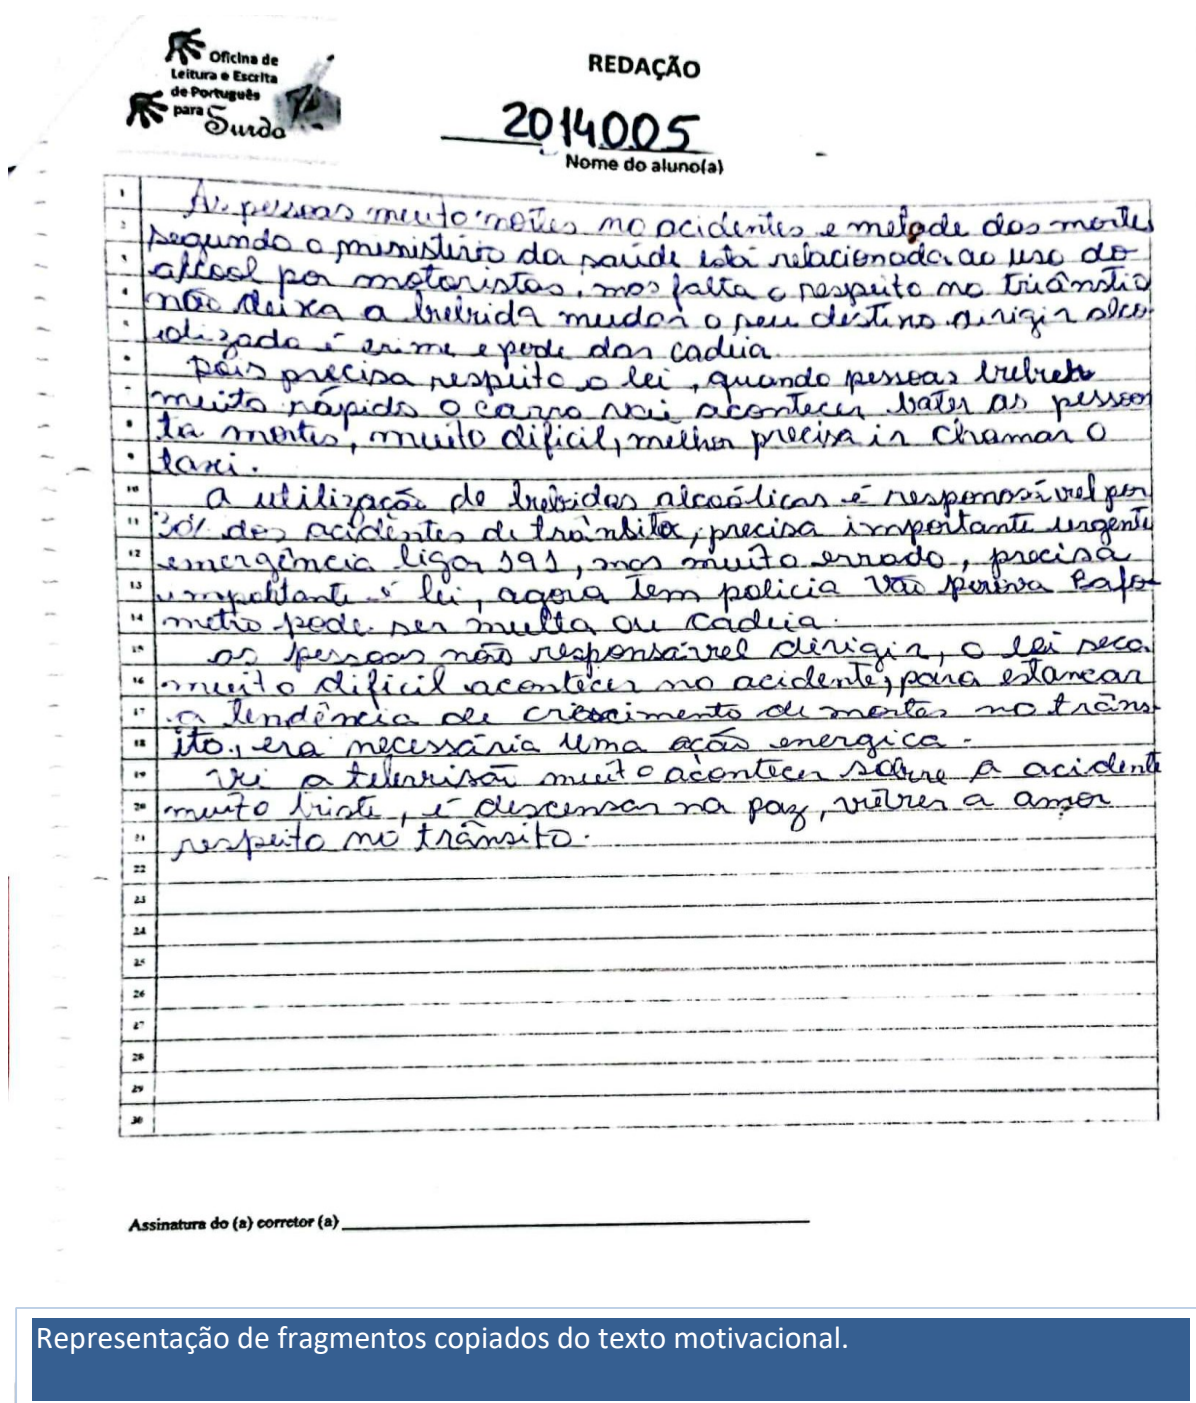 Oficina de
Leitura e Escrita
de Português
para Surdo
REDAÇÃO
2014005
Nome do aluno(a)
1 As pessoas muito mortes no acidentes e metade das mortes
2 segundo o ministério da saúde está relacionada ao uso do
3 alcool por motoristas, mas falta o respeito no triânstio
4 não deixa a bebrida mudar o seu destino dirigir alco
5 olizado é crime e pode dar cadeia.
6 pois precisa respeito a lei, quando pessoas bebreh
7 muito rápido o carro vai acontecer bater as pessoa
8 ta mortes, muito dificil, melhor precisa ir chamar o
9 taxi.
10 a utilização de bebidas alcoólicas é responsável por
11 30% dos acidentes de trânsito, precisa importante urgente
12 emergência ligar 191, mas muito errado, precisa
13 importante é lei, agora tem policia vão Bafo-
14 metro pode ser multa ou cadeia.
15 as pessoas não responsável dirigir, a lei seca
16 muito dificil acontecer no acidente, para estancar
17 a tendência de crescimento de mortes no trâns-
18 ito, era necessária uma ação energica.
19 vi a televisão muito acontecer sobre a acidente
20 muito triste, é descensar na paz, vivrer a amor
21 respeito no trânsito.
22
23
24
25
26
27
28
29
30
Assinatura do (a) corretor (a)
Representação de fragmentos copiados do texto motivacional.